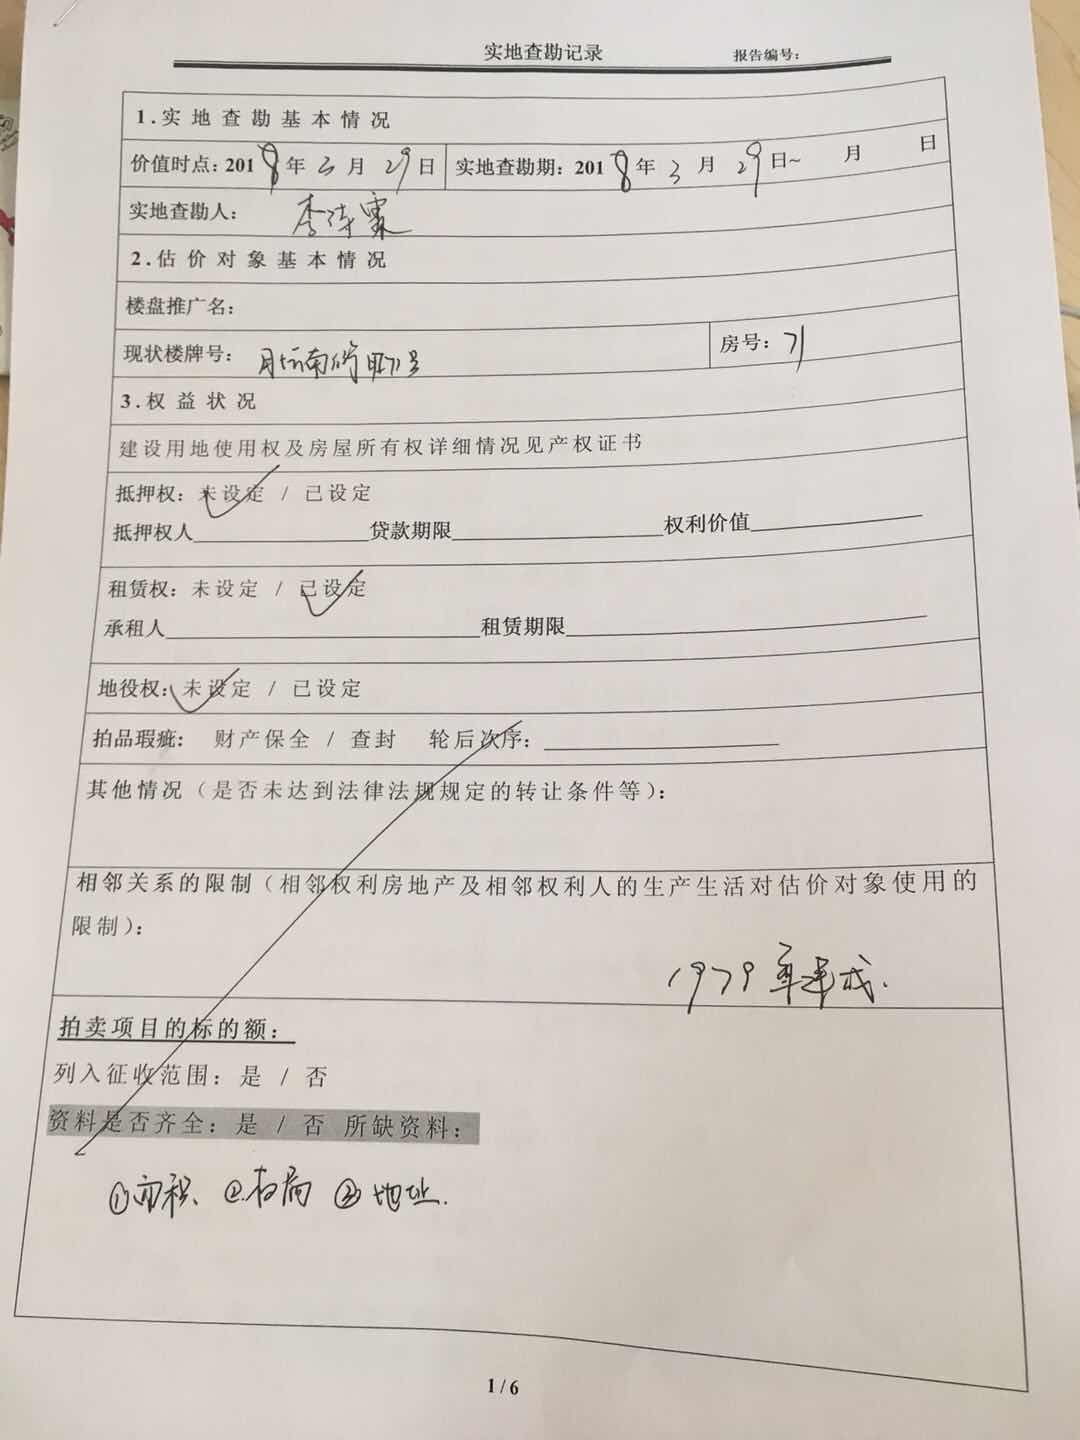 实地查勘记录 报告编号:
1.实地查勘基本情况
价值时点: 2018年3月29日 实地查勘期: 2018年3月29日~ 月 日
实地查勘人: 李
2.估价对象基本情况
楼盘推广名:
现状楼牌号: 月坛南街 71号 房号: 71
3.权益状况
建设用地使用权及房屋所有权详细情况见产权证书
抵押权: 未设定 / 已设定
抵押权人 贷款期限 权利价值
租赁权: 未设定 / 已设定
承租人 租赁期限
地役权: 未设定 / 已设定
拍品瑕疵: 财产保全 / 查封 轮后次序:
其他情况(是否未达到法律法规规定的转让条件等):
相邻关系的限制(相邻权利房地产及相邻权利人的生产生活对估价对象使用的
限制):
1979年建成.
拍卖项目的标的额:
列入征收范围: 是 / 否
资料是否齐全: 是 / 否 所缺资料:
①面积、②布局 ③地址.
1/6